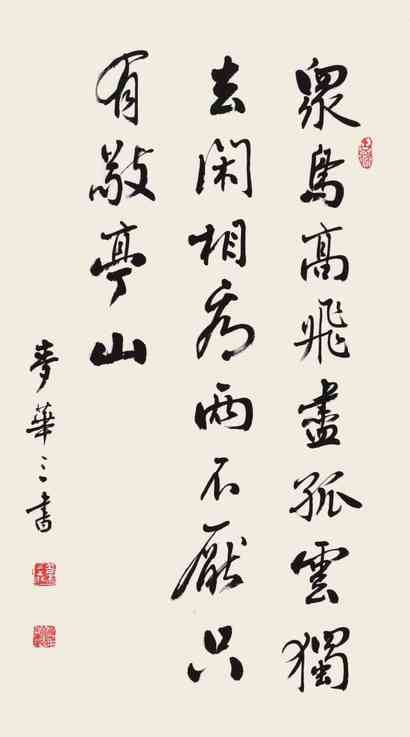 衆鳥高飛盡孤雲獨
去閑相看兩不厭只
有敬亭山
麥華三書